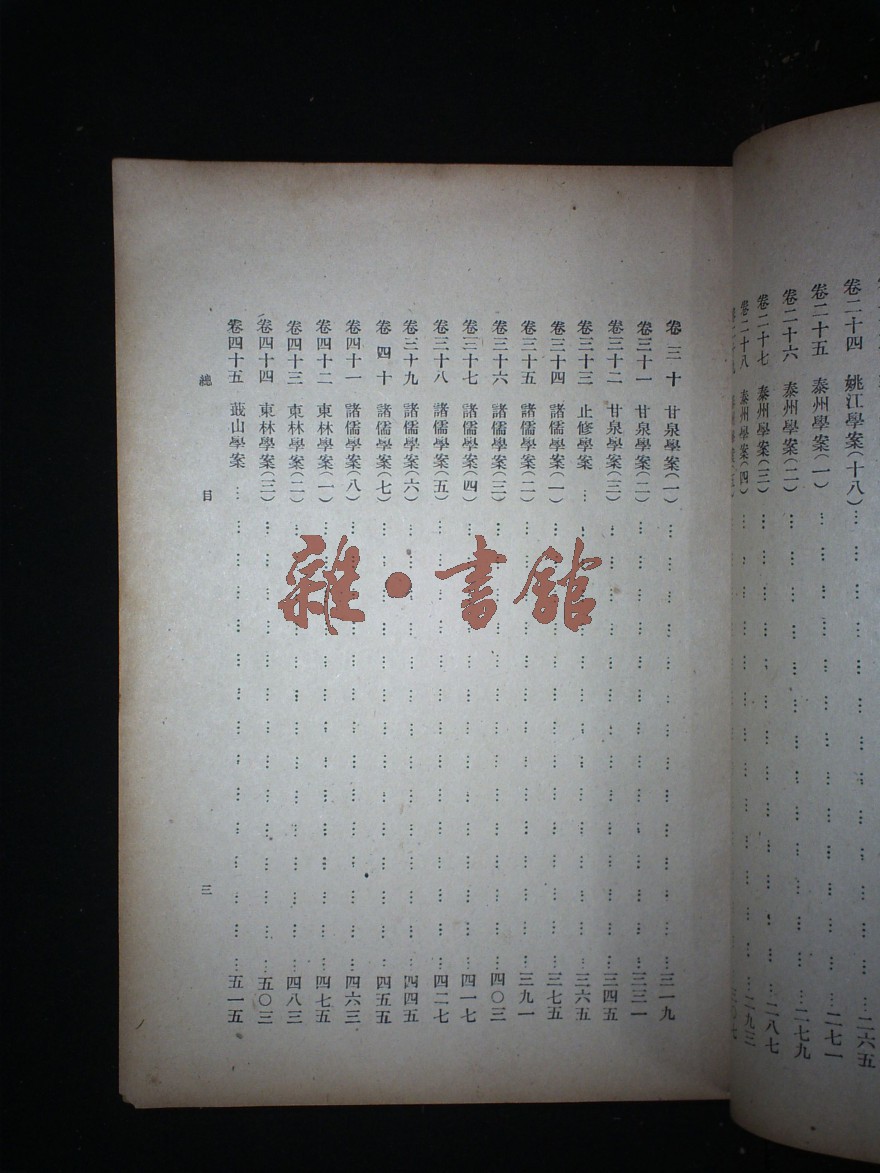 卷二十四 姚江學案(十八)……二六五
卷二十五 泰州學案(一)……二七一
卷二十六 泰州學案(二)……二七九
卷二十七 泰州學案(三)……二八七
卷二十八 泰州學案(四)……二九三
卷三十 甘泉學案(一)……三一九
卷三十一 甘泉學案(二)……三三一
卷三十二 甘泉學案(三)……三四五
卷三十三 止修學案……三六五
卷三十四 諸儒學案(一)……三七五
卷三十五 諸儒學案(二)……三九一
卷三十六 諸儒學案(三)……四〇三
卷三十七 諸儒學案(四)……四一七
卷三十八 諸儒學案(五)……四二七
卷三十九 諸儒學案(六)……四四五
卷四十 諸儒學案(七)……四五五
卷四十一 諸儒學案(八)……四六三
卷四十二 東林學案(一)……四七五
卷四十三 東林學案(二)……四八三
卷四十四 東林學案(三)……五〇三
卷四十五 蕺山學案……五一五
總目 三
雜·書館